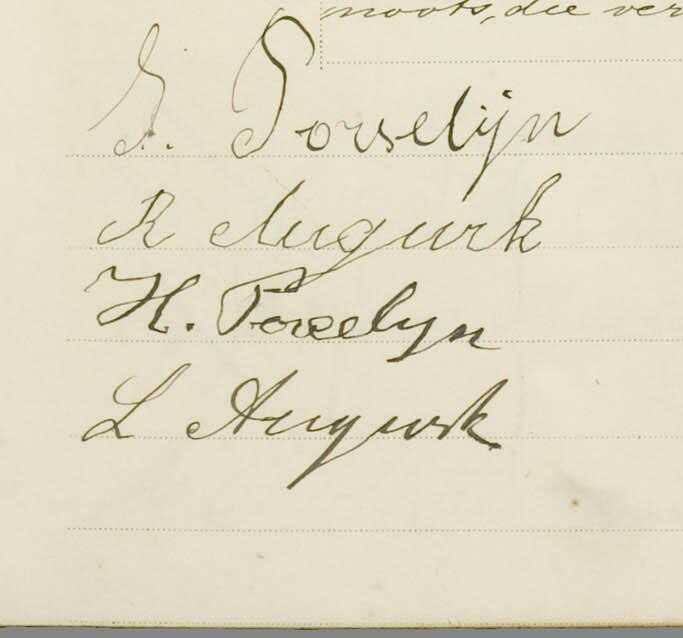 moots, die ver
Porselyn
R Augurk
H. Porselyn
L Augurk